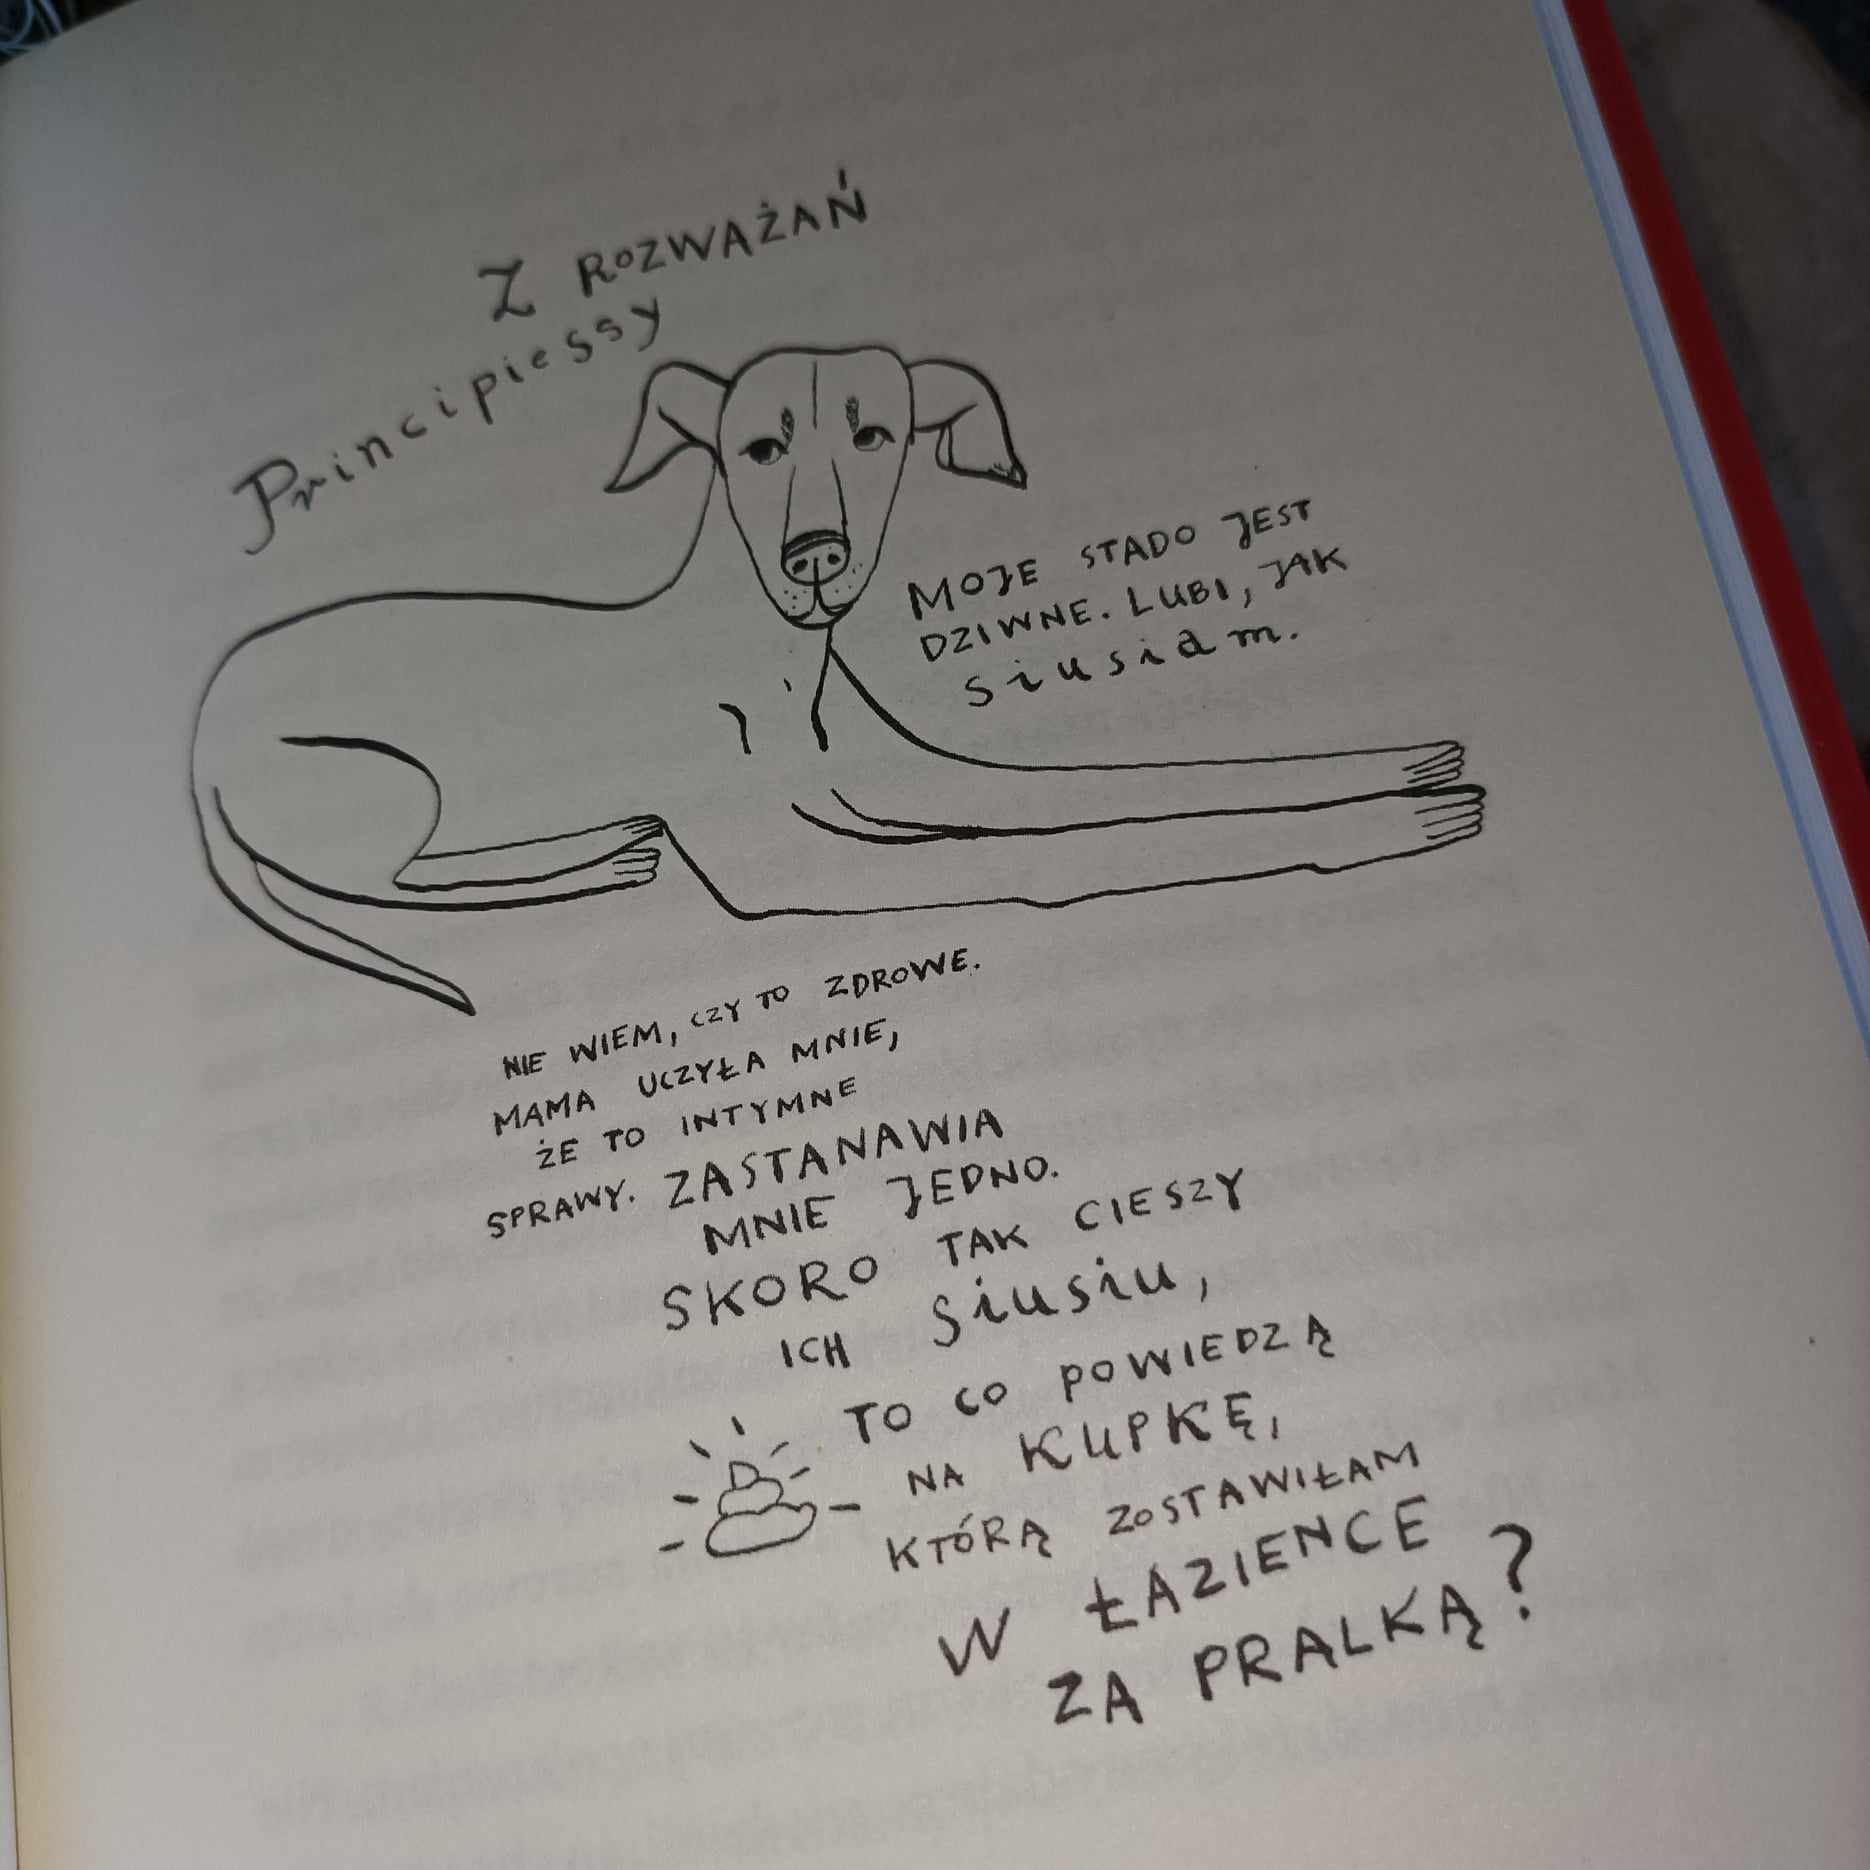 Z ROZWAŻAŃ
Principiessy
MOJE STADO JEST
DZIWNE. LUBI, JAK
siusiam.
NIE WIEM, CZY TO ZDROWE.
MAMA UCZYŁA MNIE,
ŻE TO INTYMNE
SPRAWY. ZASTANAWIA
MNIE JEDNO.
SKORO TAK CIESZY
ICH siusiu,
TO CO POWIEDZĄ
NA KUPKĘ,
KTÓRĄ ZOSTAWIŁAM
W ŁAZIENCE
ZA PRALKĄ?